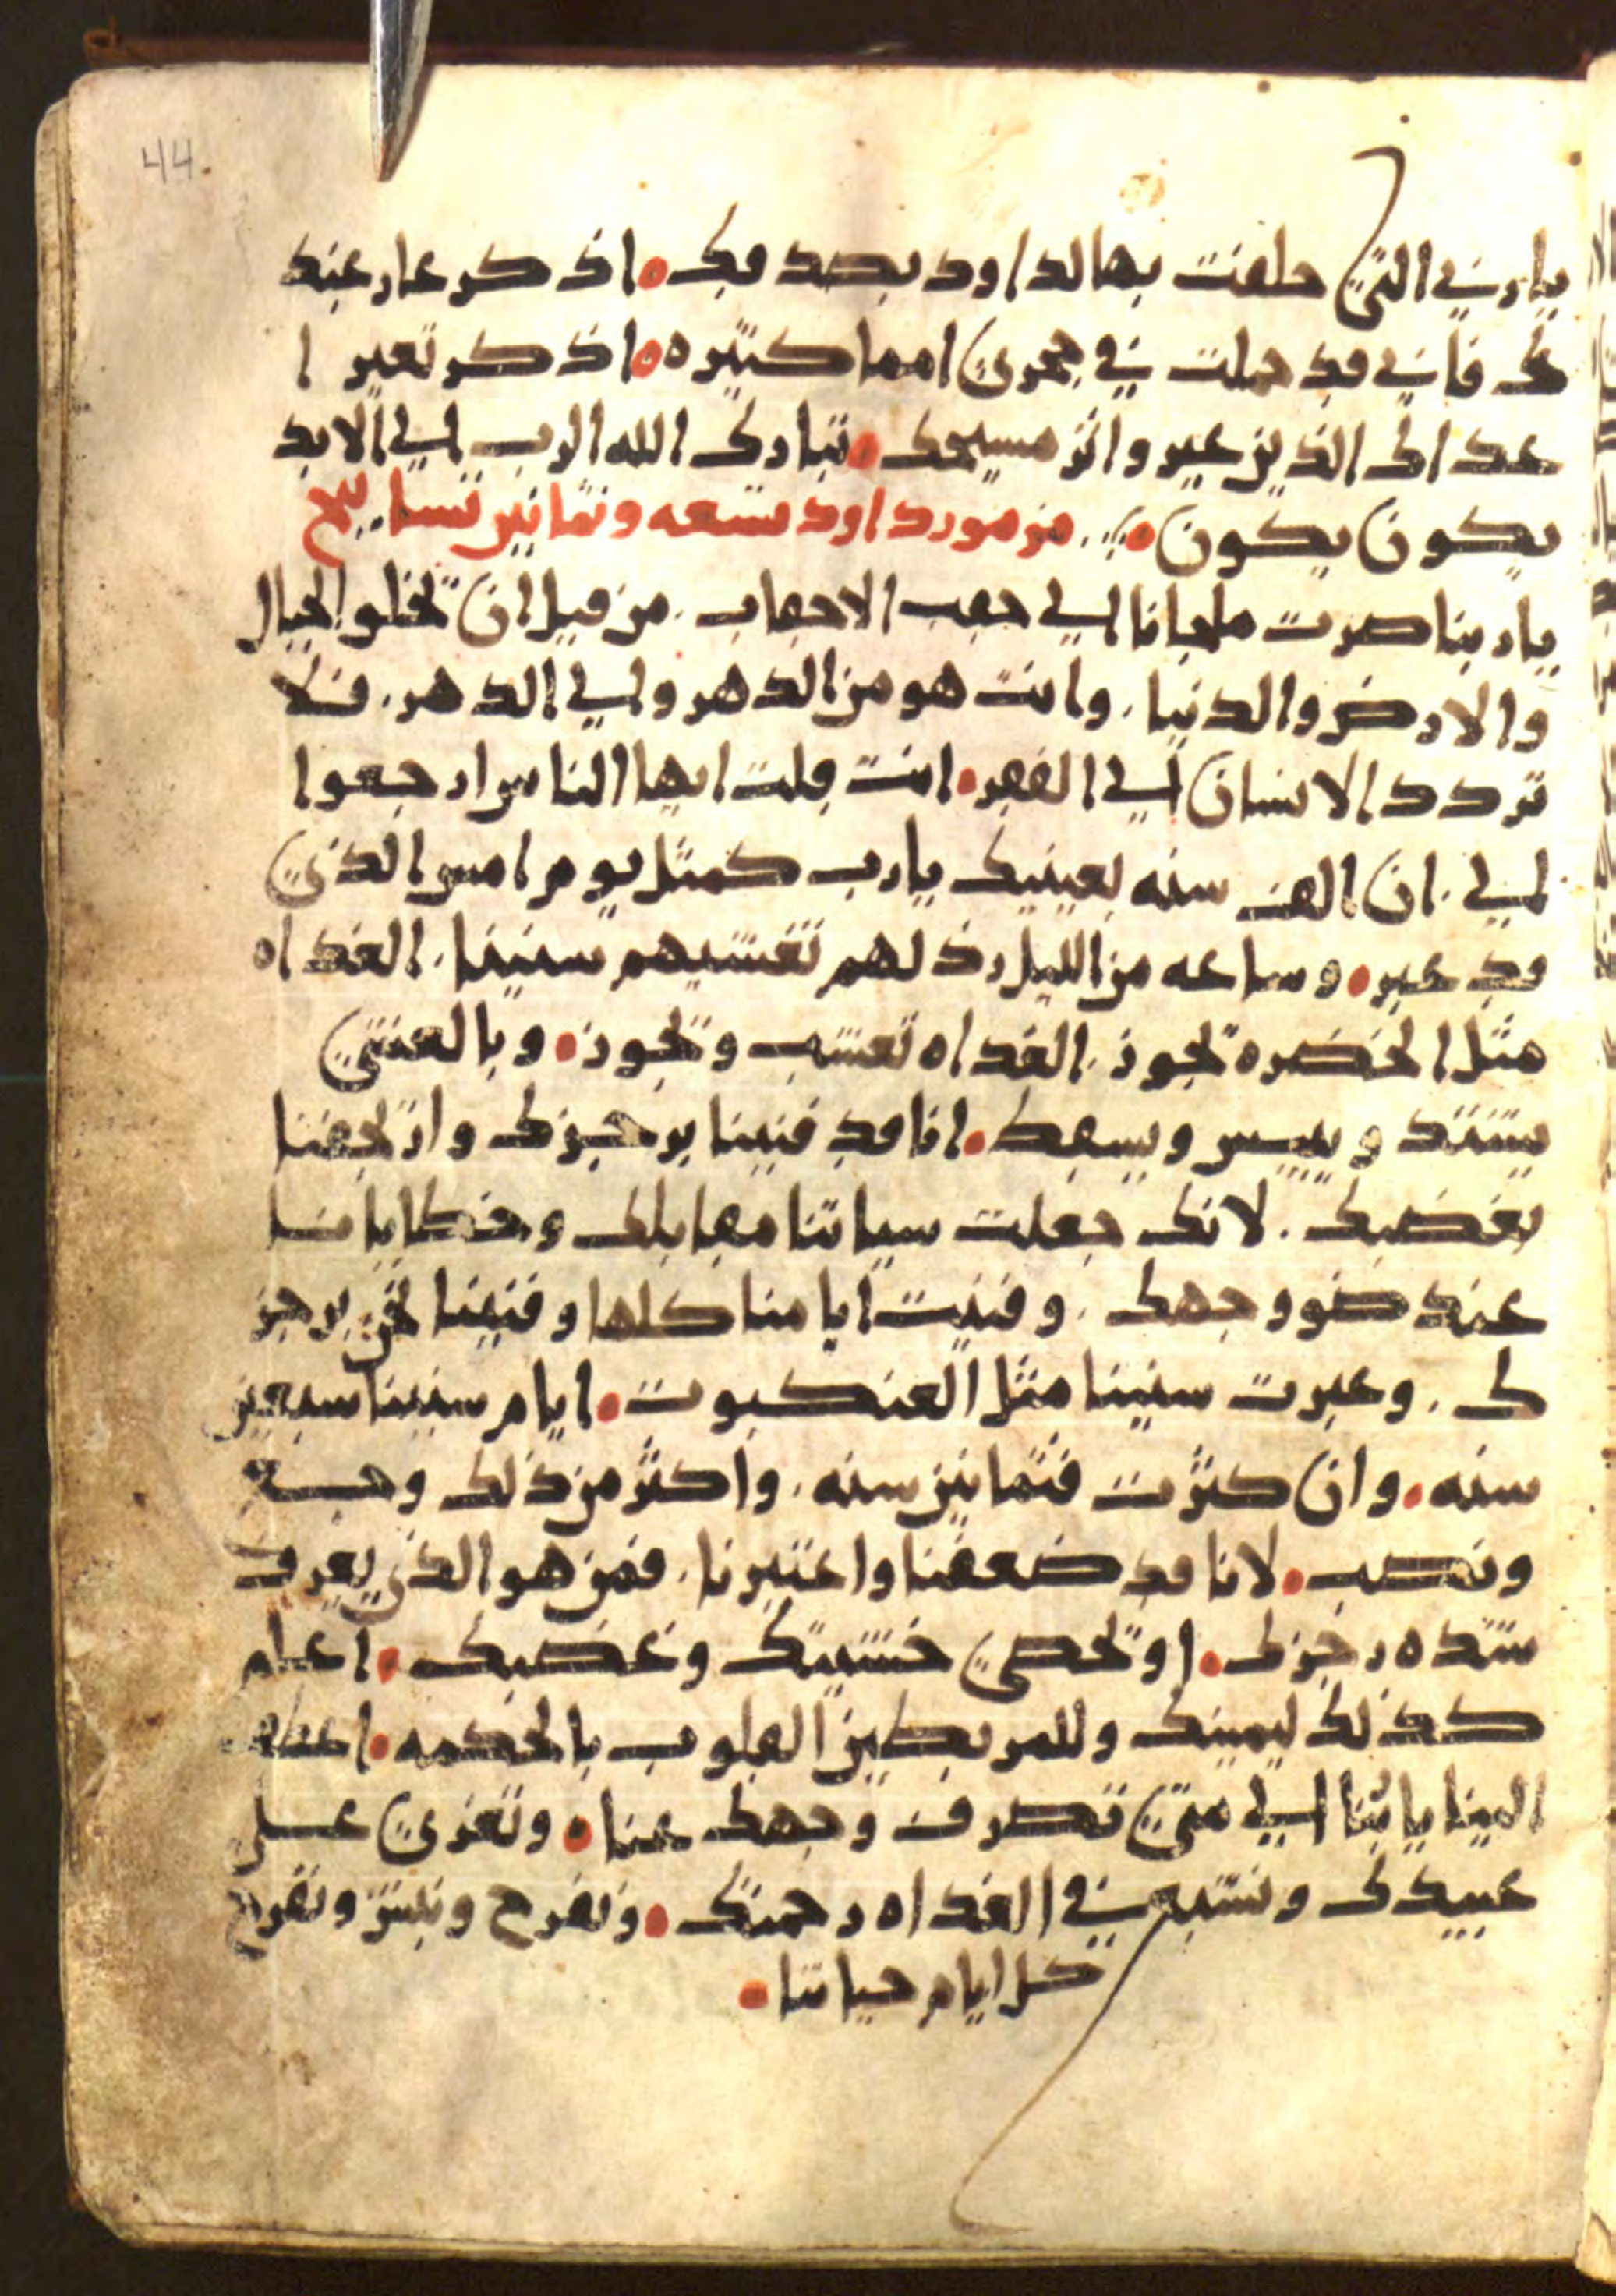 44.
يا ربي التي حلفت بها لداود بصدقك ٥ اذكر عار عبيد
ك فاني قد حملت في حجري امما كثيره ٥ اذكر تعير ا
عداك الذين عير واثر مسيحك • تبارك الله الرب الي الابد
يكون يكون • مزمور داود تسعه وثمانين تسابيح
يا ربنا صرت ملجانا الي حقب الاحقاب . من قبل ان تخلو الجبال
والارض والدنيا . وانت هو من الدهر والي الدهر . فلا
تردد الانسان الي الفقر • انت قلت ايها الناس ارجعوا
لي . ان الف سنه بعينيك يا رب كمثل يوم امس الذي
قد عبر • وساعه من الليل رذلهم تغشيهم سنينا . الغداه
مثل الخضره تجوز . الغداه تعشب وتجوز • وبالعشي
يشتد وييبس ويسقط • انا قد فنينا برجزك وارتجفنا
بغضبك . لانك جعلت سياتنا مقابلك وخطايانا
عند ضو وجهك . وفنيت ايامنا كلها وفنينا نحن برجز
ك . وعبرت سنينا مثل العنكبوت • ايام سنينا سبعين
سنه • وان كثرت فثمانين سنه . واكثر من ذلك وجــع
ونصب • لانا قد ضعفنا واعتبرنا . فمن هو الذي يعرف
شده رجزك • او تحصي خشيتك وغضبك • اعلم
كذلك ليمينك وللمربطين القلوب بالحكمه • اعطف
الينا يا ربنا الي متي تصرف وجهك عنا • وتعزي علي
عبيدك ونشبع في الغداه رحمتك • ونفرح ونبتز ونفرح
كل ايام حياتنا •